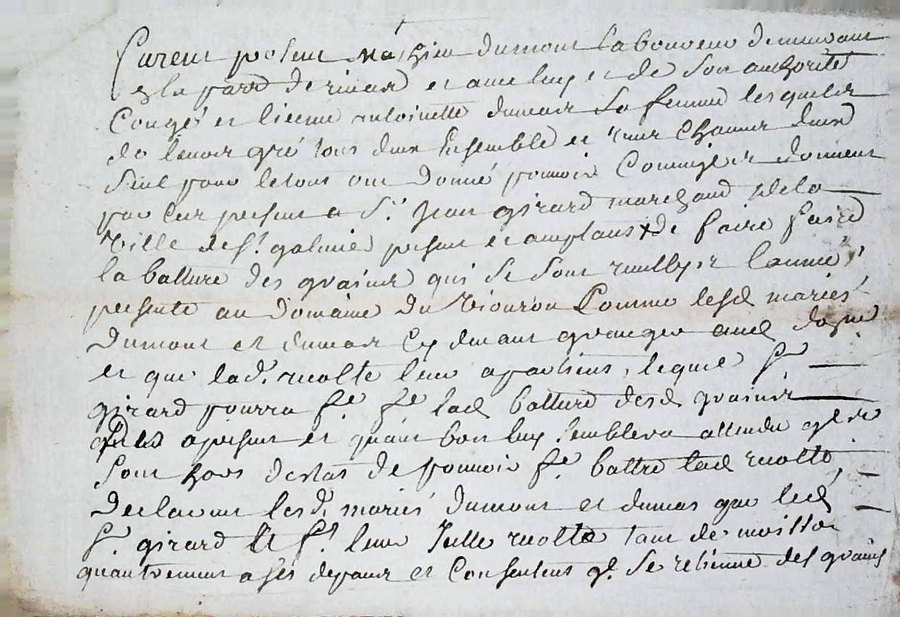 furent présent mathieu dumont laboureur demeurant
en la parr de rivas et avec luy et de son authorité
Congé et licence antoinette dumas sa femme lesquels
de leur gré tous deux Ensemble et l'un deux
seul pour le tout ont donné pouvoir donnent
par ces presente a Sr. Jean girard marchand de la
Ville de St. galmier present et acceptant de faire faire
la batture des grains qui se sont cueillyes lannée
presente au domaine du Comme lesd mariés
dumont et dumas cy devant granger aud
et que lad. recolte leur apartient, lequel Sr
girard pourra fe. fe. lad batture desd grains
a present et quand bon luy semblera attendu
sont hors destat de pouvoir fe. battre lad recolte,
declarant lesd. mariés dumont et dumas que led
Sr. girard leur recolte tant de moisson
a ses depans et Consentent q. se retienne des grains